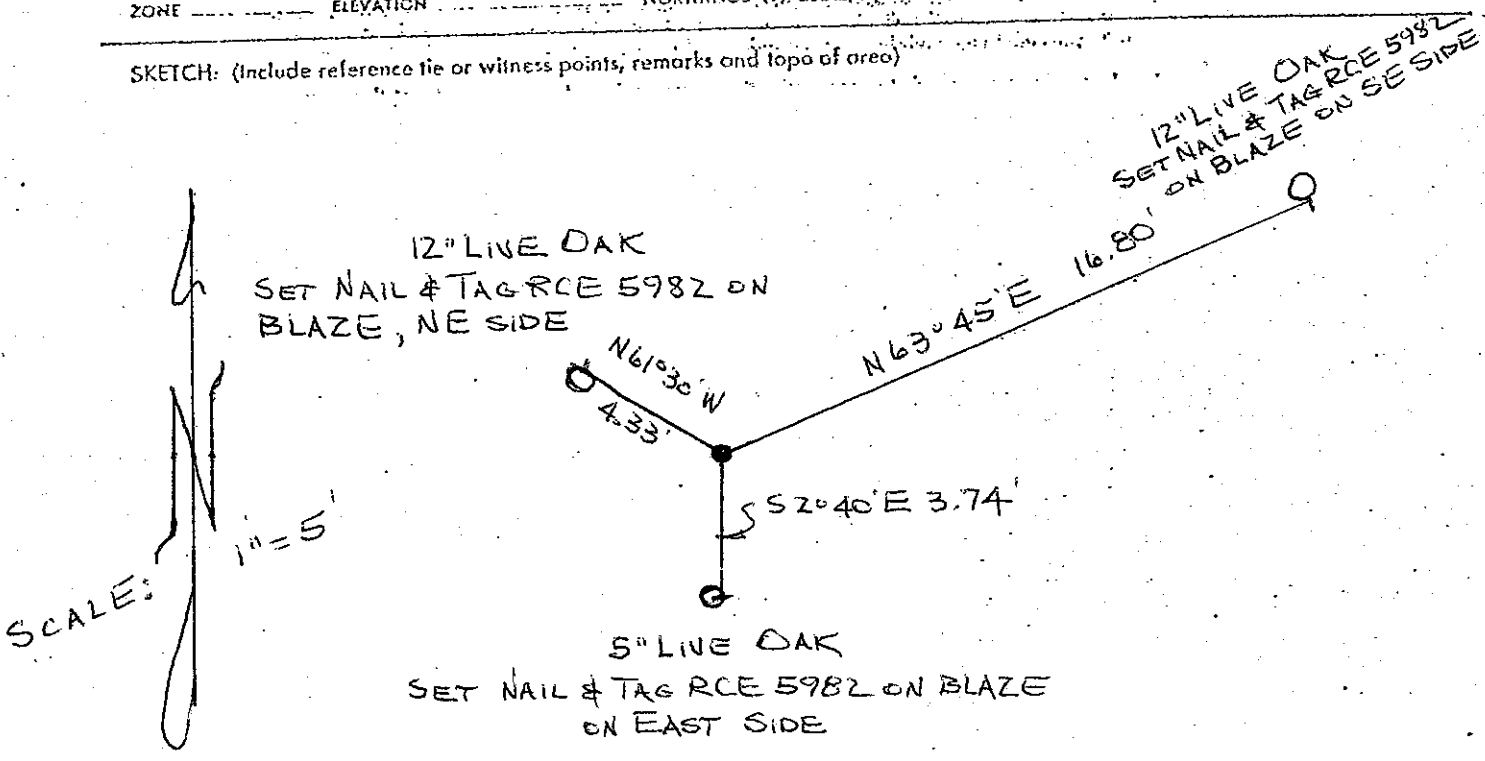 ZONE ELEVATION
SKETCH: (Include reference tie or witness points, remarks and topo of area)
12" LIVE OAK
SET NAIL & TAG RCE 5982
ON BLAZE ON SE SIDE
12" LIVE OAK
SET NAIL & TAG RCE 5982 ON
BLAZE, NE SIDE
N61°30'W
4.33'
N63°45'E 16.80'
S2°40'E 3.74'
N
SCALE: 1"=5'
5" LIVE OAK
SET NAIL & TAG RCE 5982 ON BLAZE
ON EAST SIDE